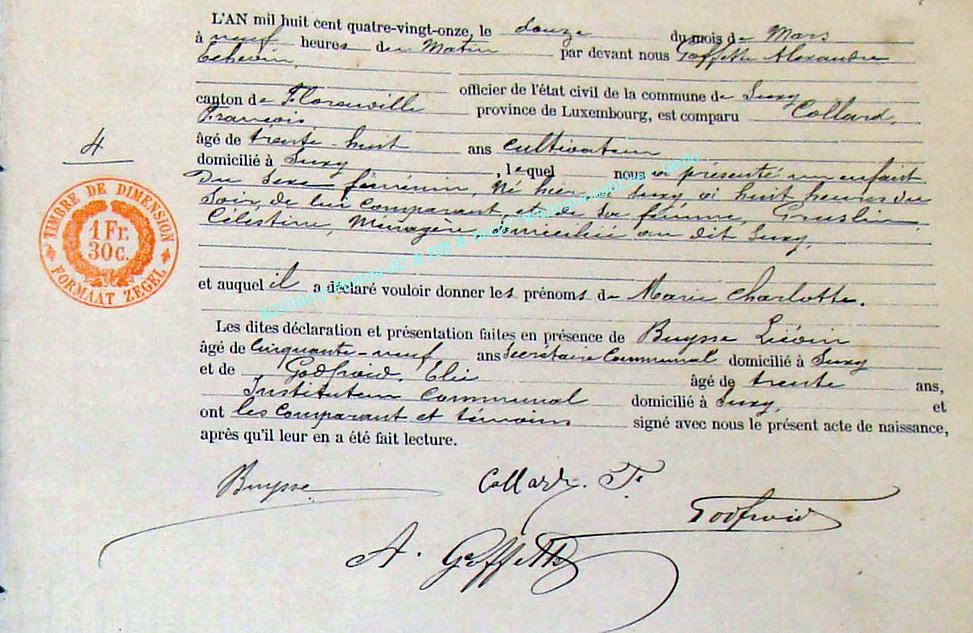 L'AN mil huit cent quatre-vingt-onze, le douze du mois de Mars
à neuf heures du Matin par devant nous Goffette Alexandre
Echevin,
officier de l'état civil de la commune de Suxy
canton de Florenville province de Luxembourg, est comparu Collard,
François
âgé de trente-huit ans cultivateur
domicilié à Suxy, lequel nous a présenté un enfant
Du sexe féminin, Né hier à Suxy à huit heures du
Soir, de lui comparant et de sa femme,
Célestine, Ménagère, domiciliée au dit Suxy,
4
TIMBRE DE DIMENSION
1 Fr.
30c.
FORMAAT ZEGEL
et auquel il a déclaré vouloir donner les prénoms de Marie Charlotte.
Les dites déclaration et présentation faites en présence de Buysse Liévin
âgé de Cinquante-neuf, ans Secrétaire Communal domicilié à Suxy
et de Godfroid, Elie âgé de trente ans,
Instituteur Communal domicilié à Suxy, et
ont les comparant et témoins signé avec nous le présent acte de naissance,
après qu'il leur en a été fait lecture.
Buysse
Collard. F.
Godfroid
A. Goffette